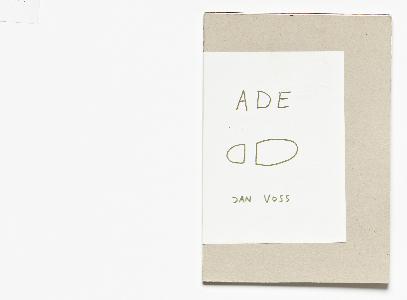 ADE
JAN VOSS